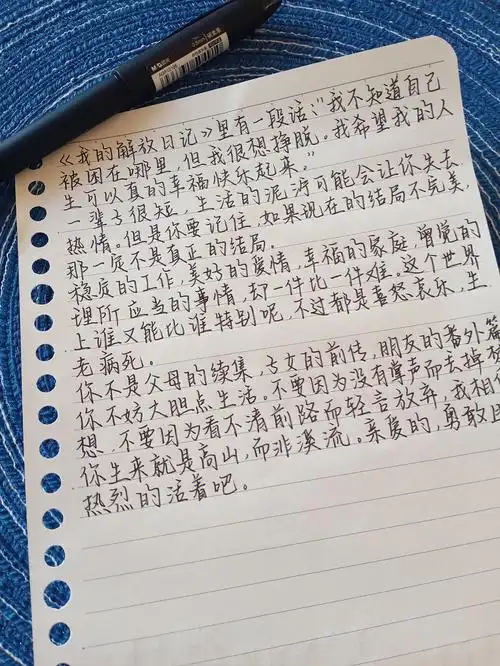 M&G
《我的解放日记》里有一段话:"我不知道自己
被困在哪里,但我很想挣脱。我希望我的人
生可以真的幸福快乐起来。"
一辈子很短,生活的泥泞可能会让你失去
热情。但是你要记住,如果现在的结局不完美,
那一定不是真正的结局。
稳定的工作,美好的爱情,幸福的家庭,曾觉的
理所应当的事情,却一件比一件难。这个世界
上谁又能比谁特别呢,不过都是喜怒哀乐,生
老病死。
你不是父母的续集,子女的前传,朋友的番外篇
你不妨大胆点生活。不要因为没有尊声而去掉
想 不要因为看不清前路而轻言放弃,我相
你生来就是高山,而非溪流。亲爱的,勇敢且
热烈的活着吧。